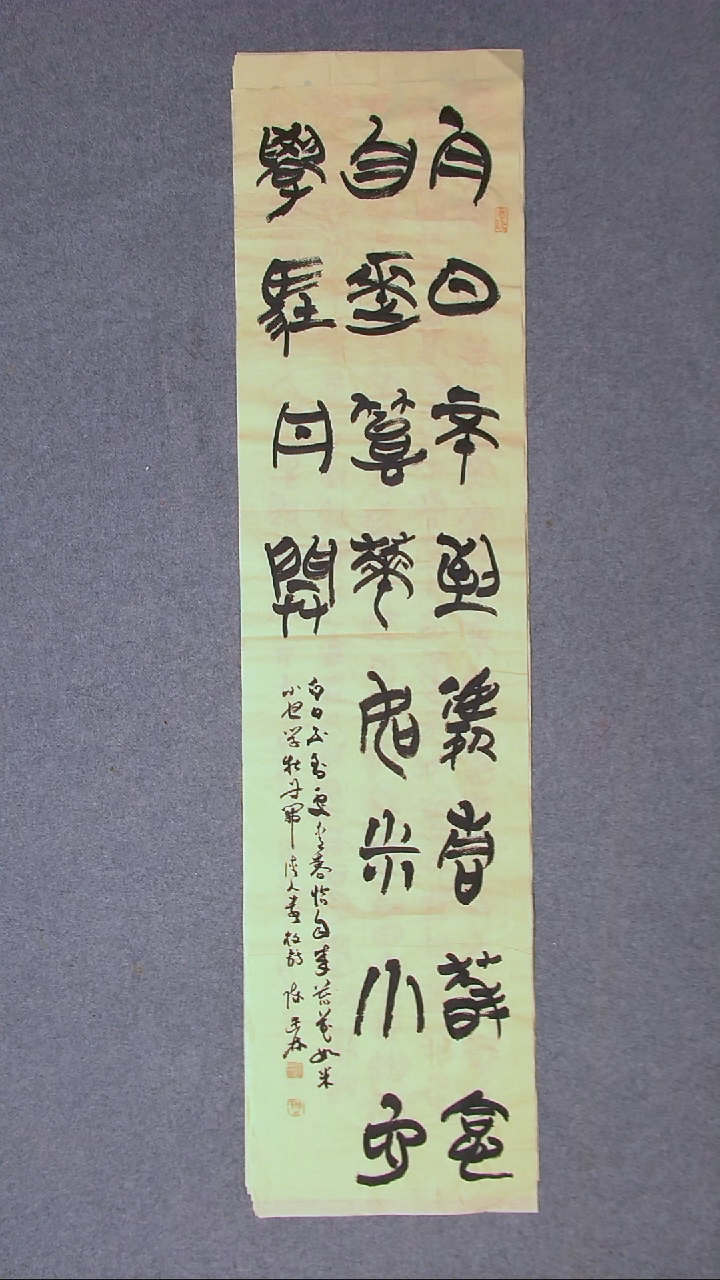 白日不到處青春恰
自來苔花如米小也
學牡丹開
白日不到處青春恰自来苔花如米
小也学牡丹開 清人袁枚诗